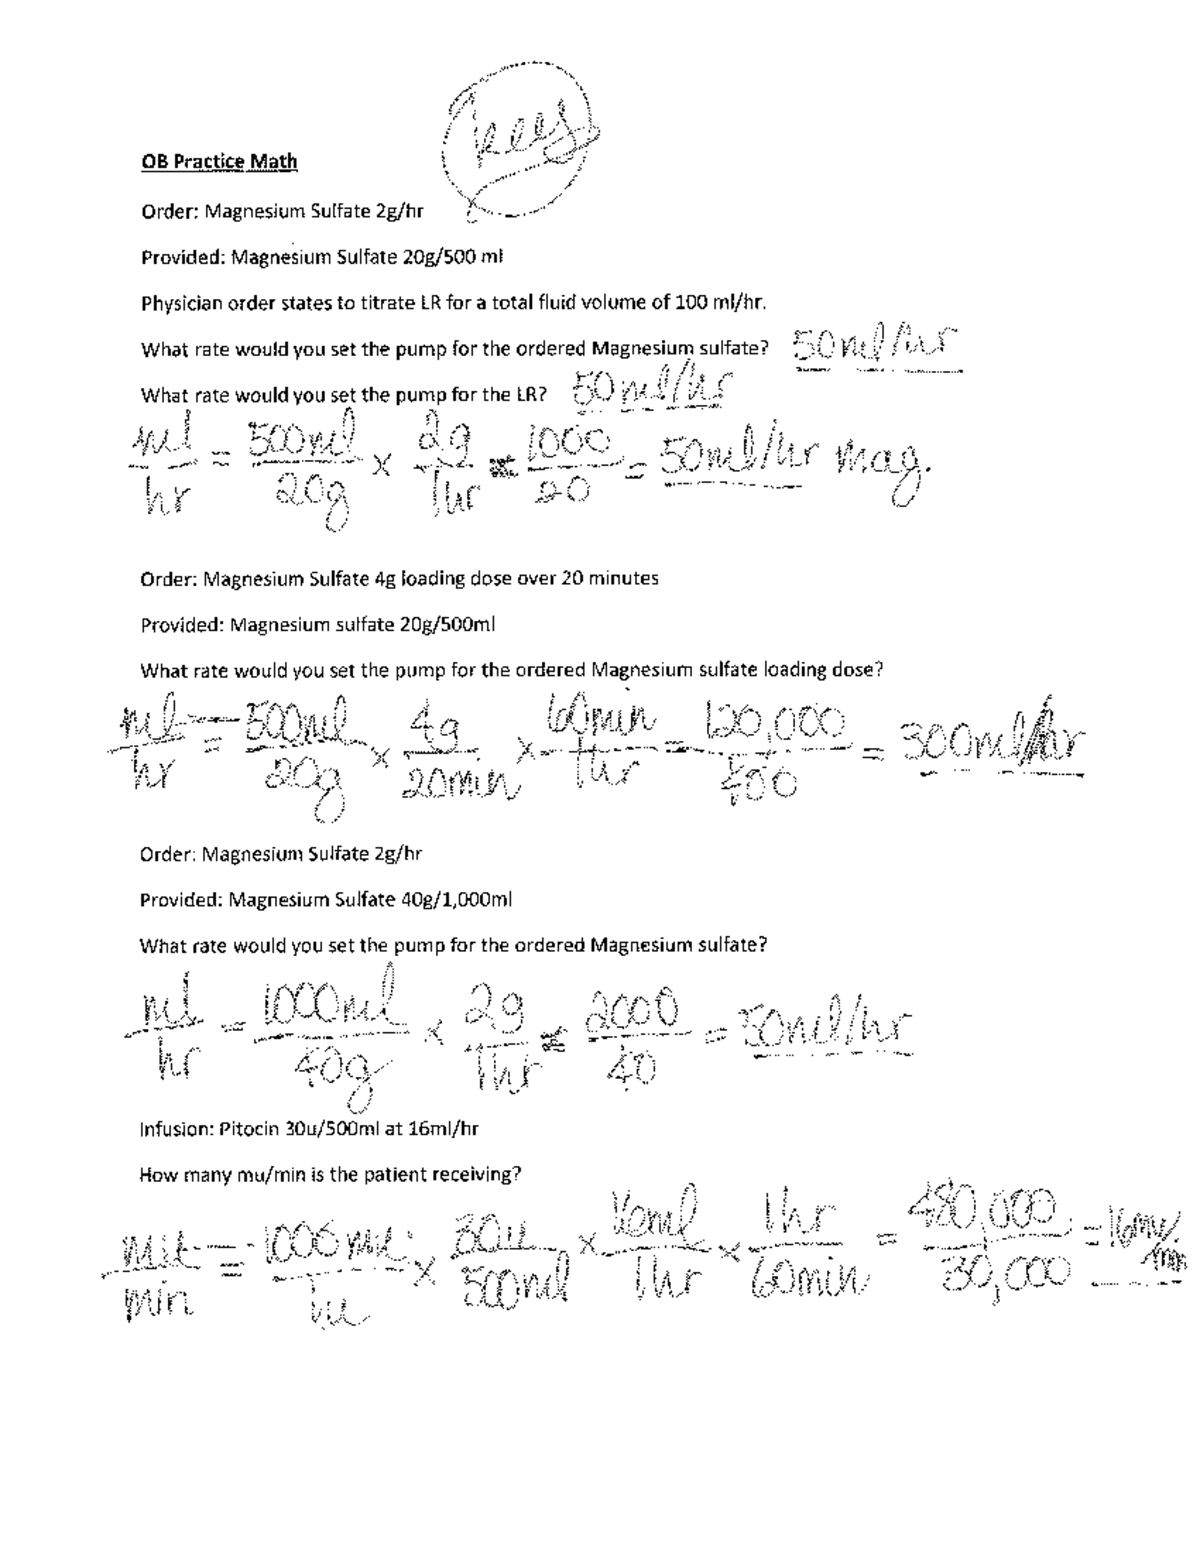 Keys
OB Practice Math
Order: Magnesium Sulfate 2g/hr
Provided: Magnesium Sulfate 20g/500 ml
Physician order states to titrate LR for a total fluid volume of 100 ml/hr.
What rate would you set the pump for the ordered Magnesium sulfate? 50ml/hr
What rate would you set the pump for the LR? 50ml/hr
ml/hr = 500ml/20g x 2g/1hr = 1000/20 = 50ml/hr mag.
Order: Magnesium Sulfate 4g loading dose over 20 minutes
Provided: Magnesium sulfate 20g/500ml
What rate would you set the pump for the ordered Magnesium sulfate loading dose?
ml/hr = 500ml/20g x 4g/20min x 60min/1hr = 120,000/400 = 300ml/hr
Order: Magnesium Sulfate 2g/hr
Provided: Magnesium Sulfate 40g/1,000ml
What rate would you set the pump for the ordered Magnesium sulfate?
ml/hr = 1000ml/40g x 2g/1hr = 2000/40 = 50ml/hr
Infusion: Pitocin 30u/500ml at 16ml/hr
How many mu/min is the patient receiving?
mu/min = 1000mu/1u x 30u/500ml x 16ml/1hr x 1hr/60min = 480,000/30,000 = 16mu/min